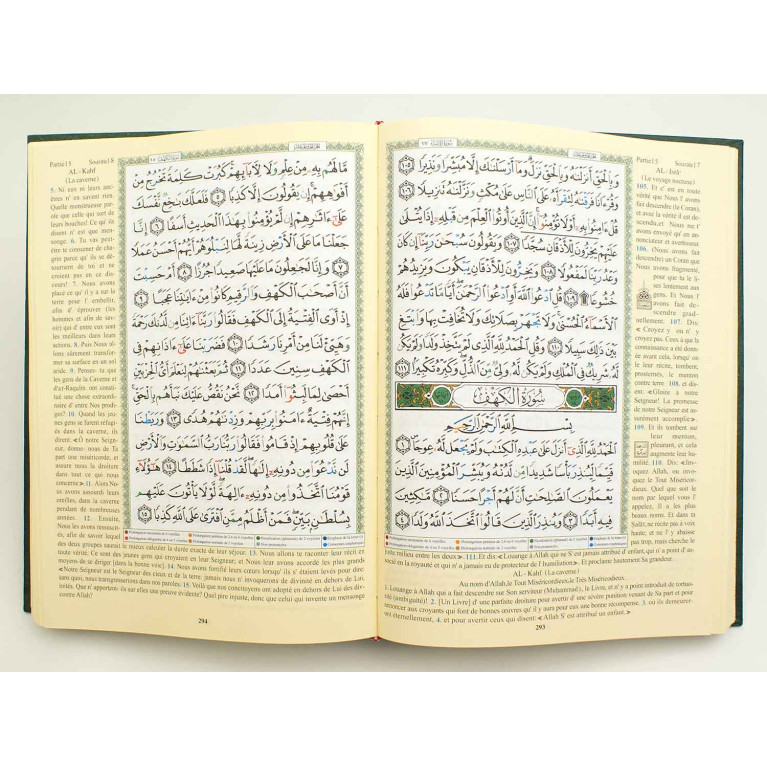 Partie15 Sourate17
AL-Isrâ'
(Le voyage nocturne)
وَبِالْحَقِّ أَنزَلْنَٰهُ وَبِالْحَقِّ نَزَلَ وَمَا أَرْسَلْنَٰكَ إِلَّا مُبَشِّرًا وَنَذِيرًا ١٠٥
وَقُرْءَانًا فَرَقْنَٰهُ لِتَقْرَأَهُۥ عَلَى النَّاسِ عَلَىٰ مُكْثٍ وَنَزَّلْنَٰهُ تَنزِيلًا ١٠٦
قُلْ ءَامِنُوا بِهِۦٓ أَوْ لَا تُؤْمِنُوٓا إِنَّ الَّذِينَ أُوتُوا الْعِلْمَ مِن قَبْلِهِۦٓ إِذَا يُتْلَىٰ
عَلَيْهِمْ يَخِرُّونَ لِلْأَذْقَانِ سُجَّدًا ١٠٧ وَيَقُولُونَ سُبْحَٰنَ رَبِّنَآ إِن كَانَ
وَعْدُ رَبِّنَا لَمَفْعُولًا ١٠٨ وَيَخِرُّونَ لِلْأَذْقَانِ يَبْكُونَ وَيَزِيدُهُمْ
خُشُوعًا ١٠٩ قُلِ ادْعُوا اللَّهَ أَوِ ادْعُوا الرَّحْمَٰنَ أَيًّا مَّا تَدْعُوا فَلَهُ
الْأَسْمَآءُ الْحُسْنَىٰ وَلَا تَجْهَرْ بِصَلَاتِكَ وَلَا تُخَافِتْ بِهَا وَابْتَغِ
بَيْنَ ذَٰلِكَ سَبِيلًا ١١٠ وَقُلِ الْحَمْدُ لِلَّهِ الَّذِي لَمْ يَتَّخِذْ وَلَدًا وَلَمْ يَكُن
لَّهُۥ شَرِيكٌ فِي الْمُلْكِ وَلَمْ يَكُن لَّهُۥ وَلِيٌّ مِّنَ الذُّلِّ وَكَبِّرْهُ تَكْبِيرًا ١١١
سُورَةُ الْكَهْفِ
بِسْمِ اللَّهِ الرَّحْمَٰنِ الرَّحِيمِ
الْحَمْدُ لِلَّهِ الَّذِيٓ أَنزَلَ عَلَىٰ عَبْدِهِ الْكِتَٰبَ وَلَمْ يَجْعَل لَّهُۥ عِوَجًا ١
قَيِّمًا لِّيُنذِرَ بَأْسًا شَدِيدًا مِّن لَّدُنْهُ وَيُبَشِّرَ الْمُؤْمِنِينَ الَّذِينَ
يَعْمَلُونَ الصَّٰلِحَٰتِ أَنَّ لَهُمْ أَجْرًا حَسَنًا ٢ مَّٰكِثِينَ
فِيهِ أَبَدًا ٣ وَيُنذِرَ الَّذِينَ قَالُوا اتَّخَذَ اللَّهُ وَلَدًا ٤
105. Et c' est en toute
vérité que Nous l' avons
fait descendre (le Coran),
et avec la vérité il est
descendu, et Nous ne t'
avons envoyé qu' en
annonciateur et avertisseur.
106. (Nous avons fait
descendre) un Coran que
Nous avons fragmenté,
pour que tu le
lises lentement
aux gens. Et Nous l'
avons fait
descendre graduellement.
107. Dis:
≪ Croyez y ou n' y
croyez pas. Ceux à qui la
connaissance a été donnée
avant cela, lorsqu' on
le leur récite, tombent,
prosternés, le menton
contre terre. 108. et disent:
≪Gloire a notre
Seigneur! La promesse
de notre Seigneur est assurément
accomplie≫.
109. Et ils tombent sur
leur menton,
pleurant, et cela
augmente leur humilité.
110. Dis: ≪Invoquez
Allah, ou invoquez
le Tout Miséricordieux.
Quel que soit le
nom par lequel vous l'
appelez, Il a les plus
beaux noms. Et dans ta
Salât, ne récite pas à voix
haute; et ne l'y abaisse
pas trop, mais cherche le
juste milieu entre les deux≫. 111. Et dis: ≪ Louange à Allah qui ne S' est jamais attribué d' enfant, qui n' a point d' associé
en la royauté et qui n' a jamais eu de protecteur de l' humiliation≫. Et proclame hautement Sa grandeur.
AL- Kahf (La caverne)
Au nom d'Allah, le Tout Miséricordieux, le Très Miséricordieux.
1. Louange à Allah qui a fait descendre sur Son serviteur (Muhammad), le Livre, et n' y a point introduit de tortuosité
(ambiguïté)! 2. [Un Livre] d' une parfaite droiture pour avertir d' une sévère punition venant de Sa part et pour
annoncer aux croyants qui font de bonnes œuvres qu' il y aura pour eux une bonne récompense. 3. où ils demeureront
éternellement, 4. et pour avertir ceux qui disent: ≪ Allah S' est attribué un enfant.≫
293
Partie15 Sourate18
AL- Kahf
(La caverne)
مَّا لَهُم بِهِۦ مِنْ عِلْمٍ وَلَا لِـَٔابَآئِهِمْ كَبُرَتْ كَلِمَةً تَخْرُجُ مِنْ
أَفْوَٰهِهِمْ إِن يَقُولُونَ إِلَّا كَذِبًا ٥ فَلَعَلَّكَ بَٰخِعٌ نَّفْسَكَ
عَلَىٰٓ ءَاثَٰرِهِمْ إِن لَّمْ يُؤْمِنُوا بِهَٰذَا الْحَدِيثِ أَسَفًا ٦ إِنَّا
جَعَلْنَا مَا عَلَى الْأَرْضِ زِينَةً لَّهَا لِنَبْلُوَهُمْ أَيُّهُمْ أَحْسَنُ عَمَلًا
٧ وَإِنَّا لَجَٰعِلُونَ مَا عَلَيْهَا صَعِيدًا جُرُزًا ٨ أَمْ حَسِبْتَ
أَنَّ أَصْحَٰبَ الْكَهْفِ وَالرَّقِيمِ كَانُوا مِنْ ءَايَٰتِنَا عَجَبًا ٩
إِذْ أَوَى الْفِتْيَةُ إِلَى الْكَهْفِ فَقَالُوا رَبَّنَآ ءَاتِنَا مِن لَّدُنكَ رَحْمَةً
وَهَيِّئْ لَنَا مِنْ أَمْرِنَا رَشَدًا ١٠ فَضَرَبْنَا عَلَىٰٓ ءَاذَانِهِمْ فِي
الْكَهْفِ سِنِينَ عَدَدًا ١١ ثُمَّ بَعَثْنَٰهُمْ لِنَعْلَمَ أَيُّ الْحِزْبَيْنِ
أَحْصَىٰ لِمَا لَبِثُوٓا أَمَدًا ١٢ نَّحْنُ نَقُصُّ عَلَيْكَ نَبَأَهُم بِالْحَقِّ
إِنَّهُمْ فِتْيَةٌ ءَامَنُوا بِرَبِّهِمْ وَزِدْنَٰهُمْ هُدًى ١٣ وَرَبَطْنَا
عَلَىٰ قُلُوبِهِمْ إِذْ قَامُوا فَقَالُوا رَبُّنَا رَبُّ السَّمَٰوَٰتِ وَالْأَرْضِ
لَن نَّدْعُوَا مِن دُونِهِۦٓ إِلَٰهًا لَّقَدْ قُلْنَآ إِذًا شَطَطًا ١٤ هَٰٓؤُلَآءِ
قَوْمُنَا اتَّخَذُوا مِن دُونِهِۦٓ ءَالِهَةً لَّوْلَا يَأْتُونَ عَلَيْهِم
بِسُلْطَٰنٍ بَيِّنٍ فَمَنْ أَظْلَمُ مِمَّنِ افْتَرَىٰ عَلَى اللَّهِ كَذِبًا ١٥
5. Ni eux ni leurs ancêtres
n' en savent rien.
Quelle monstrueuse parole
que celle qui sort de
leurs bouches!. Ce qu' ils
disent n' est que mensonge.
6. Tu vas peut-être
te consumer de chagrin
parce qu' ils se détournent
de toi et ne
croient pas en ce discours!
7. Nous avons
placé ce qu' il y a sur la
terre pour l' embellir,
afin d' éprouver (les
hommes et afin de savoir)
qui d' entre eux sont
les meilleurs dans leurs
actions. 8. Puis Nous allons
sûrement transformer
sa surface en un sol
aride. 9. Penses- tu que les
gens de la Caverne et
d'ar-Raquîm ont constitué
une chose extraordinaire
d' entre Nos prodiges?
10. Quand les jeunes
gens se furent réfugiés
dans la caverne, ils
dirent: ≪ Ô notre Seigneur,
donne- nous de Ta
part une miséricorde, et
assure nous la droiture
dans tout ce qui nous concerne≫.
11. Alors Nous
avons assourdi leurs
oreilles, dans la caverne
pendant de nombreuses
années. 12. Ensuite,
Nous les avons ressuscités,
afin de savoir lequel
des deux groupes saurait le mieux calculer la durée exacte de leur séjour. 13. Nous allons te raconter leur récit en
toute vérité. Ce sont des jeunes gens qui croyaient en leur Seigneur; et Nous leur avons accordé les plus grands
moyens de se diriger [dans la bonne voie]. 14. Nous avons fortifié leurs cœurs lorsqu' ils s' étaient levés pour dire:
≪Notre Seigneur est le Seigneur des cieux et de la terre: jamais nous n' invoquerons de divinité en dehors de Lui,
sans quoi, nous transgresserions dans nos paroles. 15. Voilà que nos concitoyens ont adopté en dehors de Lui des divinités.
Que n' apportent- ils sur elles une preuve évidente? Quel pire injuste, donc que celui qui invente un mensonge
contre Allah?
294